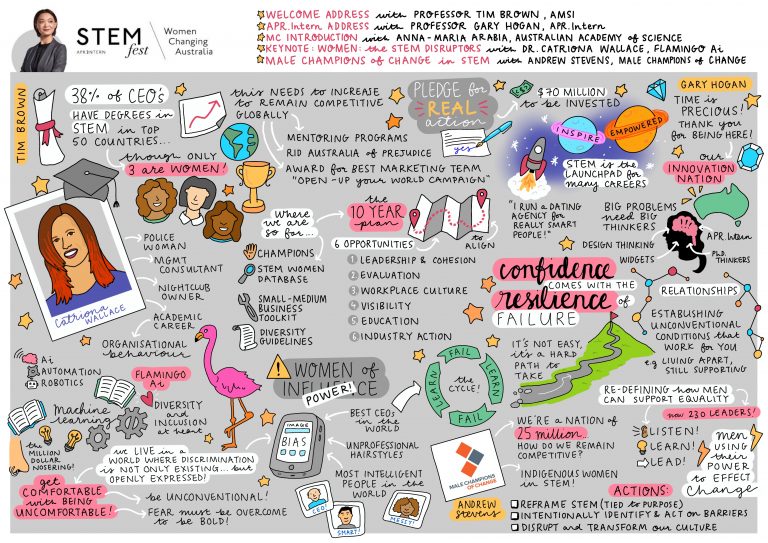 STEM
fest
APR.INTERN
Women
Changing
Australia
WELCOME ADDRESS with PROFESSOR TIM BROWN, AMSI
APR.Intern ADDRESS with PROFESSOR GARY HOGAN, APR.Intern
MC INTRODUCTION with ANNA-MARIA ARABIA, AUSTRALIAN ACADEMY of SCIENCE
KEYNOTE: WOMEN: the STEM DISRUPTORS with DR. CATRIONA WALLACE, FLAMINGO Ai
MALE CHAMPIONS of CHANGE in STEM with ANDREW STEVENS, MALE CHAMPIONS of CHANGE
TIM BROWN
38% of CEO's
HAVE DEGREES in
STEM in TOP
50 COUNTRIES...
though ONLY
3 are WOMEN!
this NEEDS to INCREASE
to REMAIN COMPETITIVE
GLOBALLY
MENTORING PROGRAMS
RID AUSTRALIA of PREJUDICE
AWARD for BEST MARKETING TEAM
"OPEN-UP your WORLD CAMPAIGN"
PLEDGE for
REAL
action
yes
$70 MILLION
to BE INVESTED
INSPIRE
EMPOWERED
STEM is the
LAUNCHPAD for
many CAREERS
GARY HOGAN
TIME is
PRECIOUS!
THANK YOU
for BEING HERE!
our
INNOVATION
NATION
"I RUN a DATING
AGENCY for
REALLY SMART
PEOPLE!"
BIG PROBLEMS
need BIG
THINKERS
DESIGN THINKING
WIDGETS
APR.Intern
Ph.D.
THINKERS
where WE
are SO
far...
CHAMPIONS
STEM WOMEN
DATABASE
SMALL-MEDIUM
BUSINESS
TOOLKIT
DIVERSITY
GUIDELINES
the
10 YEAR
plan
to
ALIGN
6 OPPORTUNITIES
1 LEADERSHIP & COHESION
2 EVALUATION
3 WORKPLACE CULTURE
4 VISIBILITY
5 EDUCATION
6 INDUSTRY ACTION
Catriona
WALLACE
POLICE
WOMAN
MGMT
CONSULTANT
NIGHTCLUB
OWNER
ACADEMIC
CAREER
ORGANISATIONAL
behaviour
Ai
AUTOMATION
ROBOTICS
FLAMINGO
Ai
Machine
learning
DIVERSITY
and
INCLUSION
at heart
the
MILLION
DOLLAR
NOSERING!
we LIVE in a
WORLD WHERE DISCRIMINATION
is NOT ONLY EXISTING... but
OPENLY EXPRESSED!
get
COMFORTABLE
with BEING
UNCOMFORTABLE!
be UNCONVENTIONAL!
FEAR must BE OVERCOME
to BE BOLD!
WOMEN of
INFLUENCE
POWER!
IMAGE
BIAS
BEST CEOs
in the
WORLD
UNPROFESSIONAL
HAIRSTYLES
MOST INTELLIGENT
PEOPLE in the
WORLD
CEO!
SMART!
MESSY!
confidence
COMES WITH THE
resilience of
FAILURE
IT'S NOT EASY,
it's A HARD
PATH to
TAKE
FAIL
LEARN
FAIL
LEARN
the
CYCLE!
RELATIONSHIPS
ESTABLISHING
UNCONVENTIONAL
CONDITIONS that
WORK for YOU
e.g LIVING APART,
STILL SUPPORTING
MALE CHAMPIONS
OF CHANGE
ANDREW
Stevens
WE'RE a NATION of
25 million...
HOW do WE REMAIN
COMPETITIVE?
INDIGENOUS WOMEN
in STEM!
RE-DEFINING how MEN
CAN SUPPORT EQUALITY
now 230 LEADERS!
LISTEN!
LEARN!
LEAD!
men
USING
their
POWER
to EFFECT
Change
ACTIONS:
REFRAME STEM (TIED to PURPOSE)
INTENTIONALLY IDENTIFY & ACT on BARRIERS
DISRUPT and TRANSFORM our CULTURE